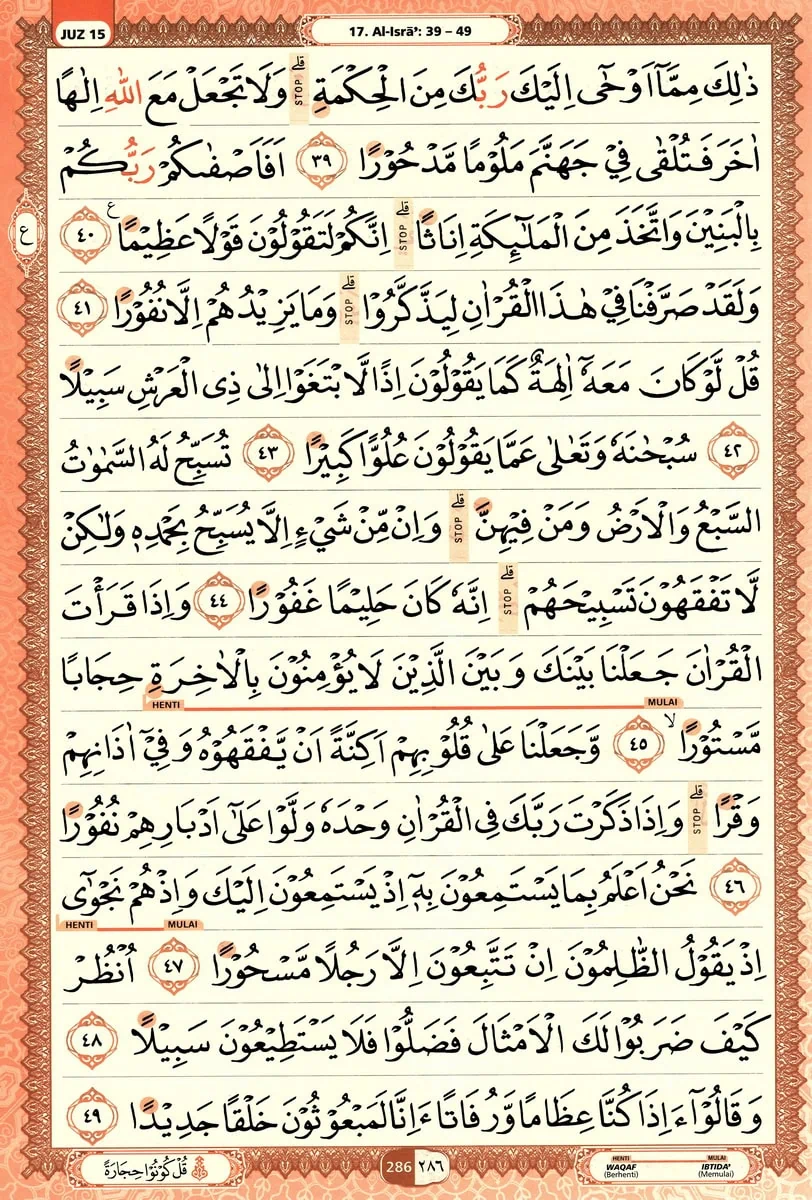 JUZ 15
17. Al-Isrā’: 39 – 49
ذٰلِكَ مِمَّآ اَوْحٰٓى اِلَيْكَ رَبُّكَ مِنَ الْحِكْمَةِ ۗ STOP وَلَا تَجْعَلْ مَعَ اللّٰهِ اِلٰهًا
اٰخَرَ فَتُلْقٰى فِيْ جَهَنَّمَ مَلُوْمًا مَّدْحُوْرًا ٣٩ اَفَاَصْفٰىكُمْ رَبُّكُمْ
ع
بِالْبَنِيْنَ وَاتَّخَذَ مِنَ الْمَلٰۤىِٕكَةِ اِنَاثًا ۗ STOP اِنَّكُمْ لَتَقُوْلُوْنَ قَوْلًا عَظِيْمًا ࣖ ٤٠
وَلَقَدْ صَرَّفْنَا فِيْ هٰذَا الْقُرْاٰنِ لِيَذَّكَّرُوْا ۗ STOP وَمَا يَزِيْدُهُمْ اِلَّا نُفُوْرًا ٤١
قُلْ لَّوْ كَانَ مَعَهٗٓ اٰلِهَةٌ كَمَا يَقُوْلُوْنَ اِذًا لَّابْتَغَوْا اِلٰى ذِى الْعَرْشِ سَبِيْلًا
٤٢ سُبْحٰنَهٗ وَتَعٰلٰى عَمَّا يَقُوْلُوْنَ عُلُوًّا كَبِيْرًا ٤٣ تُسَبِّحُ لَهُ السَّمٰوٰتُ
السَّبْعُ وَالْاَرْضُ وَمَنْ فِيْهِنَّ ۗ STOP وَاِنْ مِّنْ شَيْءٍ اِلَّا يُسَبِّحُ بِحَمْدِهٖ وَلٰكِنْ
لَّا تَفْقَهُوْنَ تَسْبِيْحَهُمْ ۗ STOP اِنَّهٗ كَانَ حَلِيْمًا غَفُوْرًا ٤٤ وَاِذَا قَرَأْتَ
الْقُرْاٰنَ جَعَلْنَا بَيْنَكَ وَبَيْنَ الَّذِيْنَ لَا يُؤْمِنُوْنَ بِالْاٰخِرَةِ حِجَابًا
MULAI HENTI
مَّسْتُوْرًا ۙ ٤٥ وَّجَعَلْنَا عَلٰى قُلُوْبِهِمْ اَكِنَّةً اَنْ يَّفْقَهُوْهُ وَفِيْٓ اٰذَانِهِمْ
وَقْرًا ۗ STOP وَاِذَا ذَكَرْتَ رَبَّكَ فِى الْقُرْاٰنِ وَحْدَهٗ وَلَّوْا عَلٰٓى اَدْبَارِهِمْ نُفُوْرًا
٤٦ نَحْنُ اَعْلَمُ بِمَا يَسْتَمِعُوْنَ بِهٖٓ اِذْ يَسْتَمِعُوْنَ اِلَيْكَ وَاِذْ هُمْ نَجْوٰٓى
MULAI HENTI
اِذْ يَقُوْلُ الظّٰلِمُوْنَ اِنْ تَتَّبِعُوْنَ اِلَّا رَجُلًا مَّسْحُوْرًا ٤٧ اُنْظُرْ
كَيْفَ ضَرَبُوْا لَكَ الْاَمْثَالَ فَضَلُّوْا فَلَا يَسْتَطِيْعُوْنَ سَبِيْلًا ٤٨
وَقَالُوْٓا ءَاِذَا كُنَّا عِظَامًا وَّرُفَاتًا ءَاِنَّا لَمَبْعُوْثُوْنَ خَلْقًا جَدِيْدًا ٤٩
قُلْ كُوْنُوْا حِجَارَةً
286 ٢٨٦
HENTI MULAI
WAQAF IBTIDA’
(Berhenti) (Memulai)